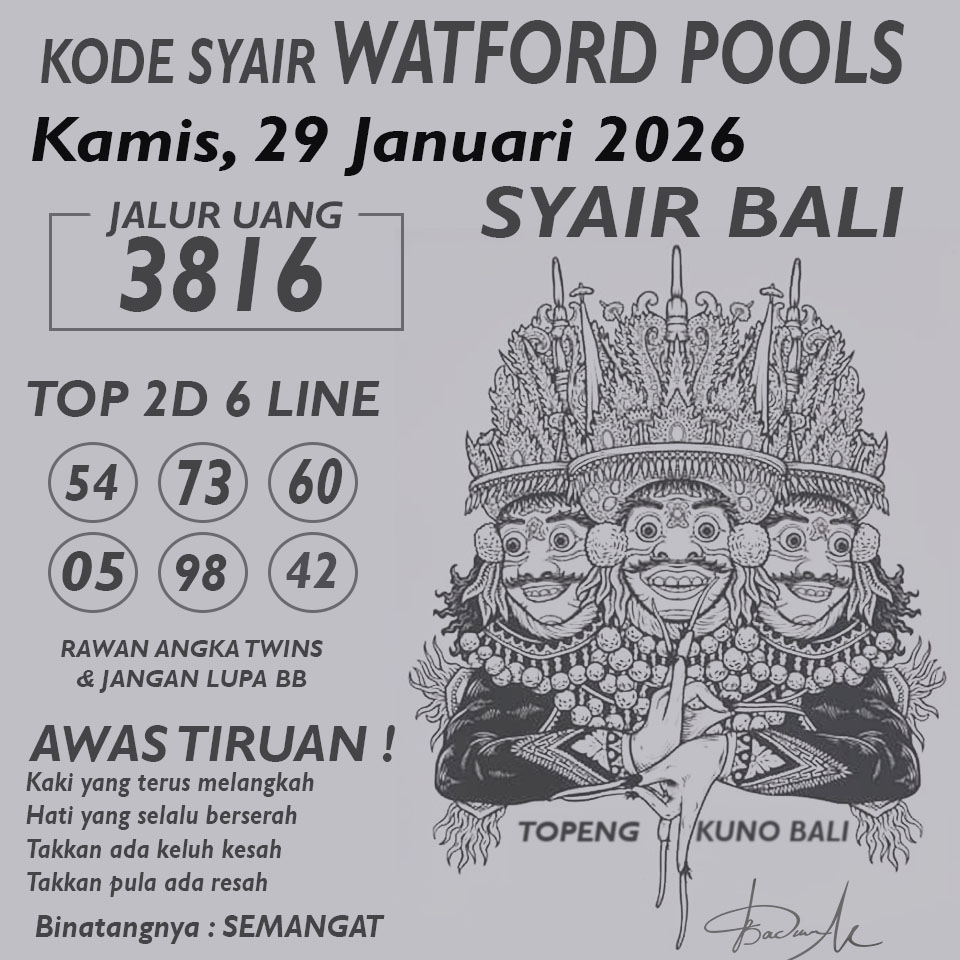 KODE SYAIR WATFORD POOLS
Kamis, 29 Januari 2026
SYAIR BALI
JALUR UANG
3816
TOP 2D 6 LINE
54 73 60
05 98 42
RAWAN ANGKA TWINS
& JANGAN LUPA BB
AWAS TIRUAN !
Kaki yang terus melangkah
Hati yang selalu berserah
Takkan ada keluh kesah
Takkan pula ada resah
Binatangnya : SEMANGAT
TOPENG KUNO BALI